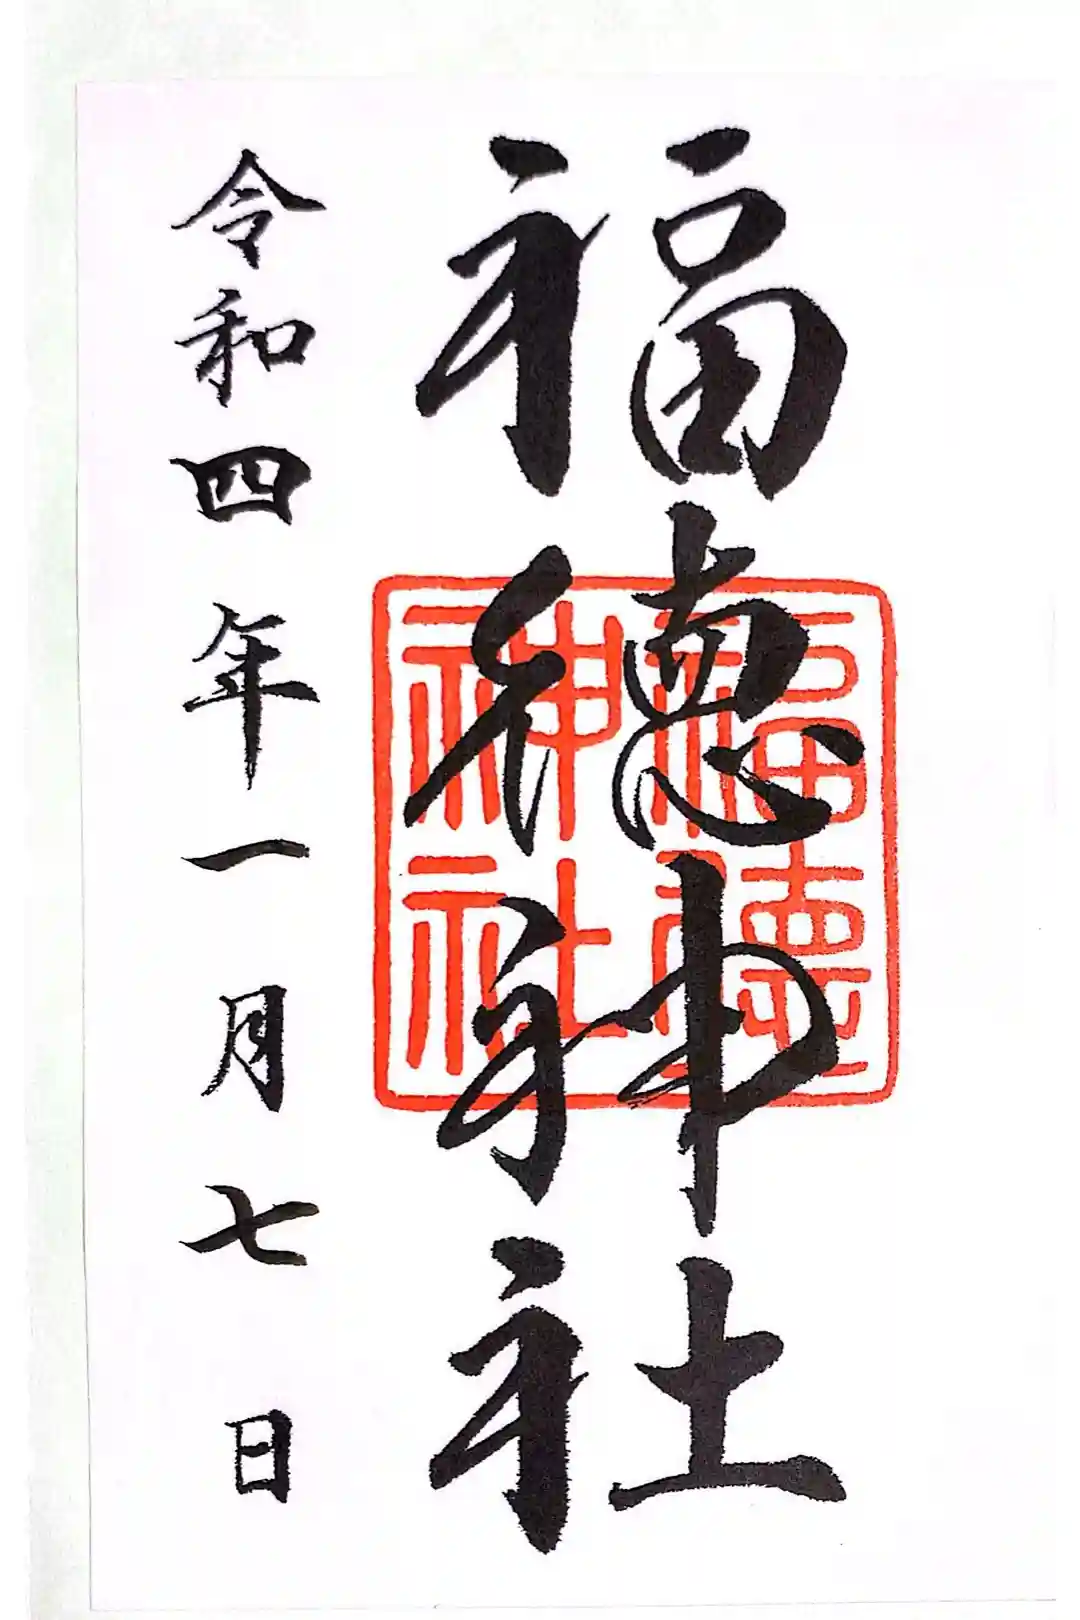 福徳神社
福徳
神社
令和四年一月七日